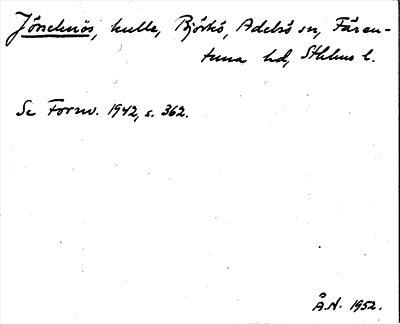 Jörelnös, kulle, Björkö, Adelsö sn, Fären-
tuna hd, Sthlms l.
Se Fornv. 1942, s. 362.
Å.N. 1952.